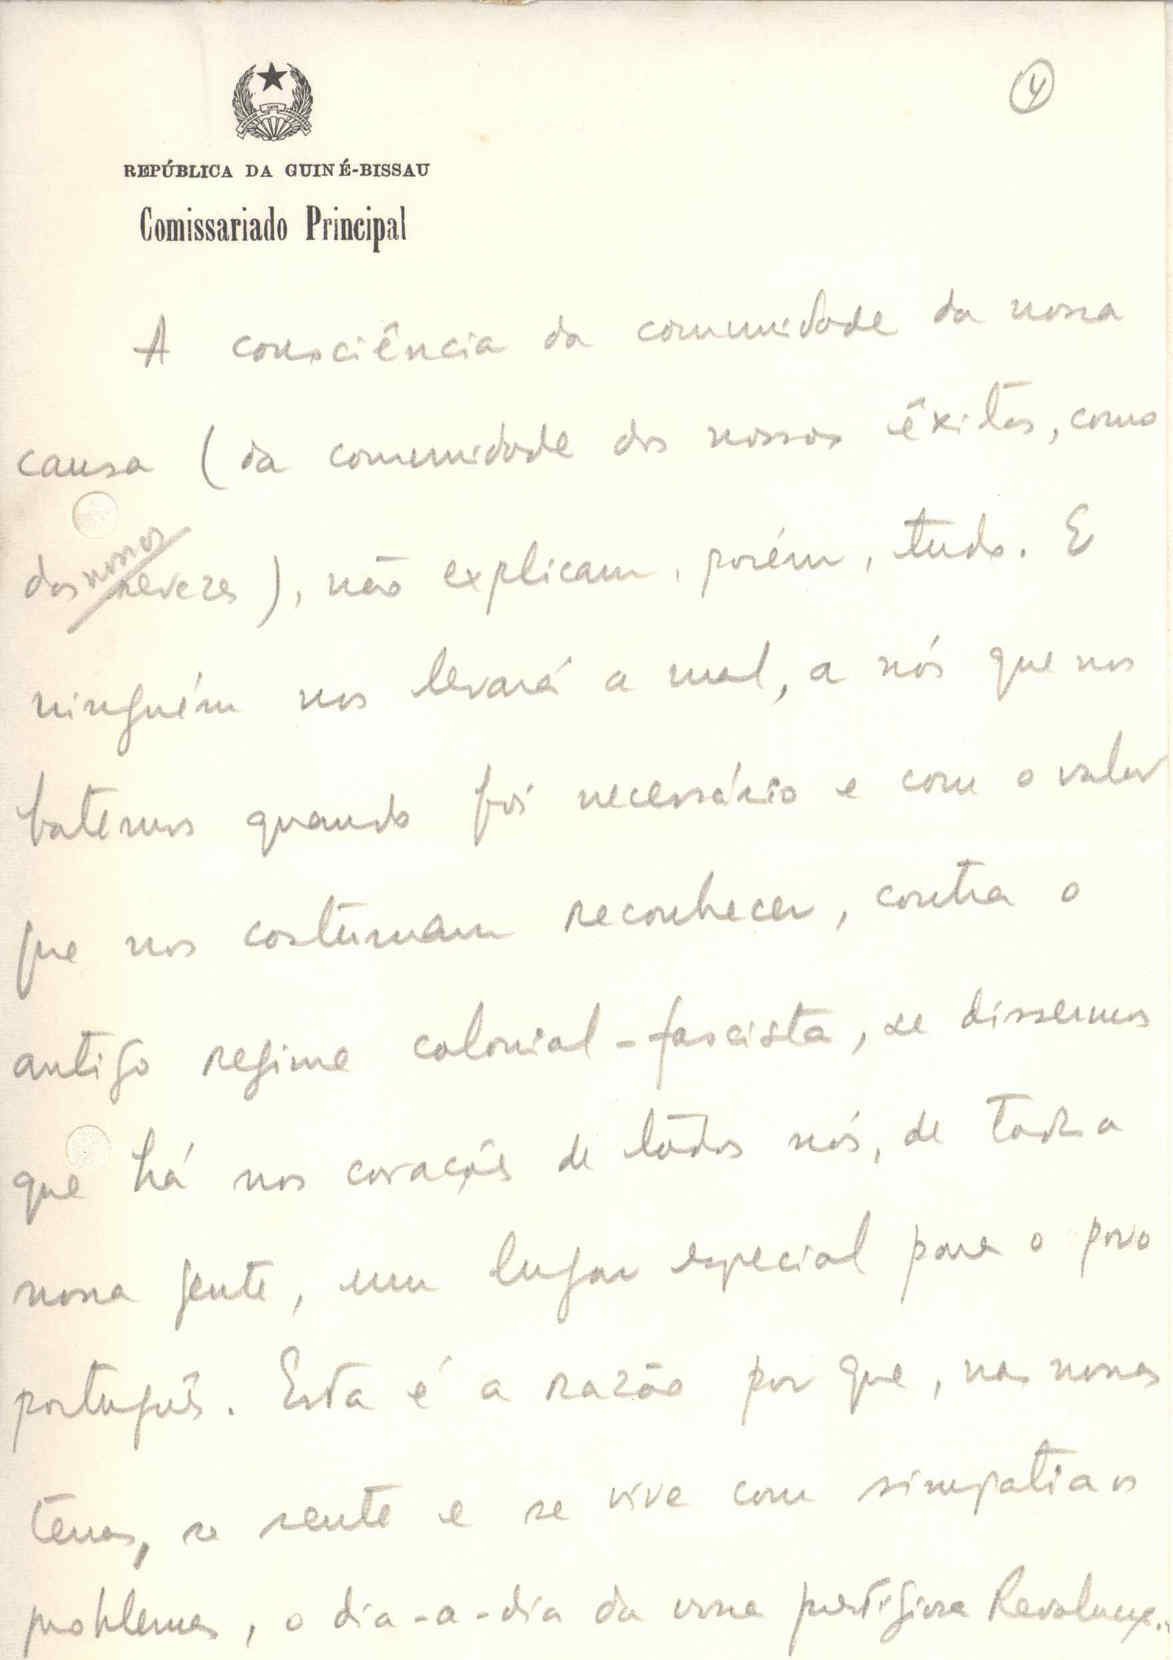 4
REPÚBLICA DA GUINÉ-BISSAU
Comissariado Principal
A consciência da comunidade da nossa
causa (da comunidade dos nossos êxitos, como
dos nossos revezes), não explicam, porém, tudo. E
ninguém nos levará a mal, a nós que nos
batemos quando foi necessário e com o valor
que nos costumam reconhecer, contra o
antigo regime colonial-fascista, se dissermos
que há nos corações de todos nós, de toda a
nossa gente, um lugar especial para o povo
português. Esta é a razão por que, nas nossas
terras, se sente e se vive com simpatia os
problemas, o dia-a-dia da vossa prestigiosa